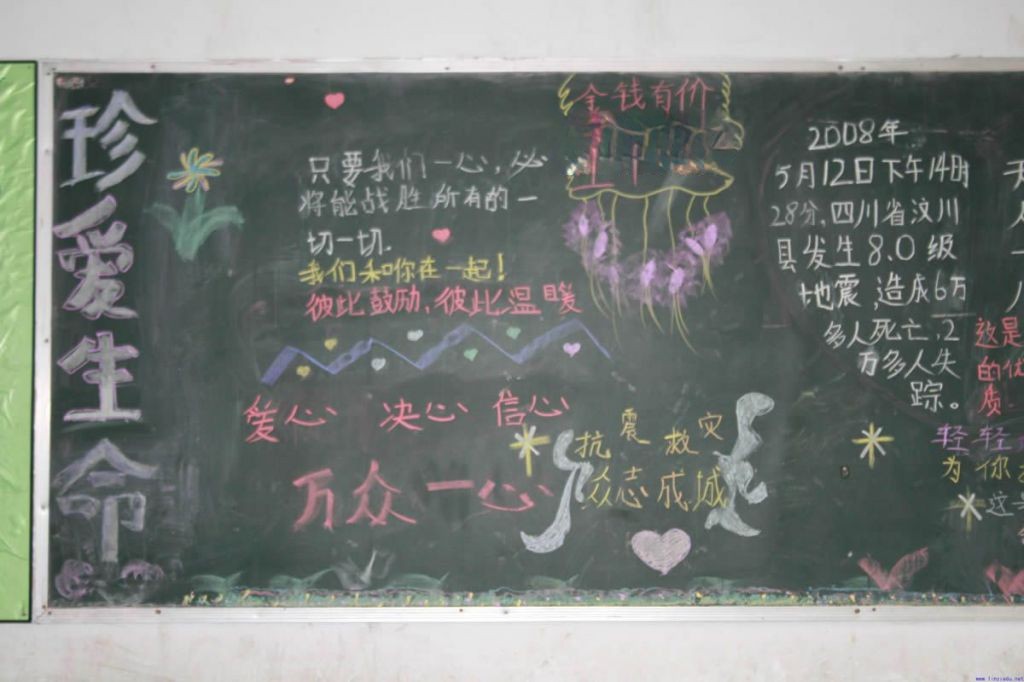 珍爱生命
只要我们一心,必
将能战胜所有的一
切一切.
我们和你在一起!
彼比鼓励,彼比温暖
爱心 决心 信心
万众一心
金钱有价
抗震救灾
众志成城
2008年
5月12日下午14时
28分,四川省汶川
县发生8.0级
地震,造成6万
多人死亡,2
万多人失
踪。
这是
的优
质
轻轻
为你
这
www.linziedu.net